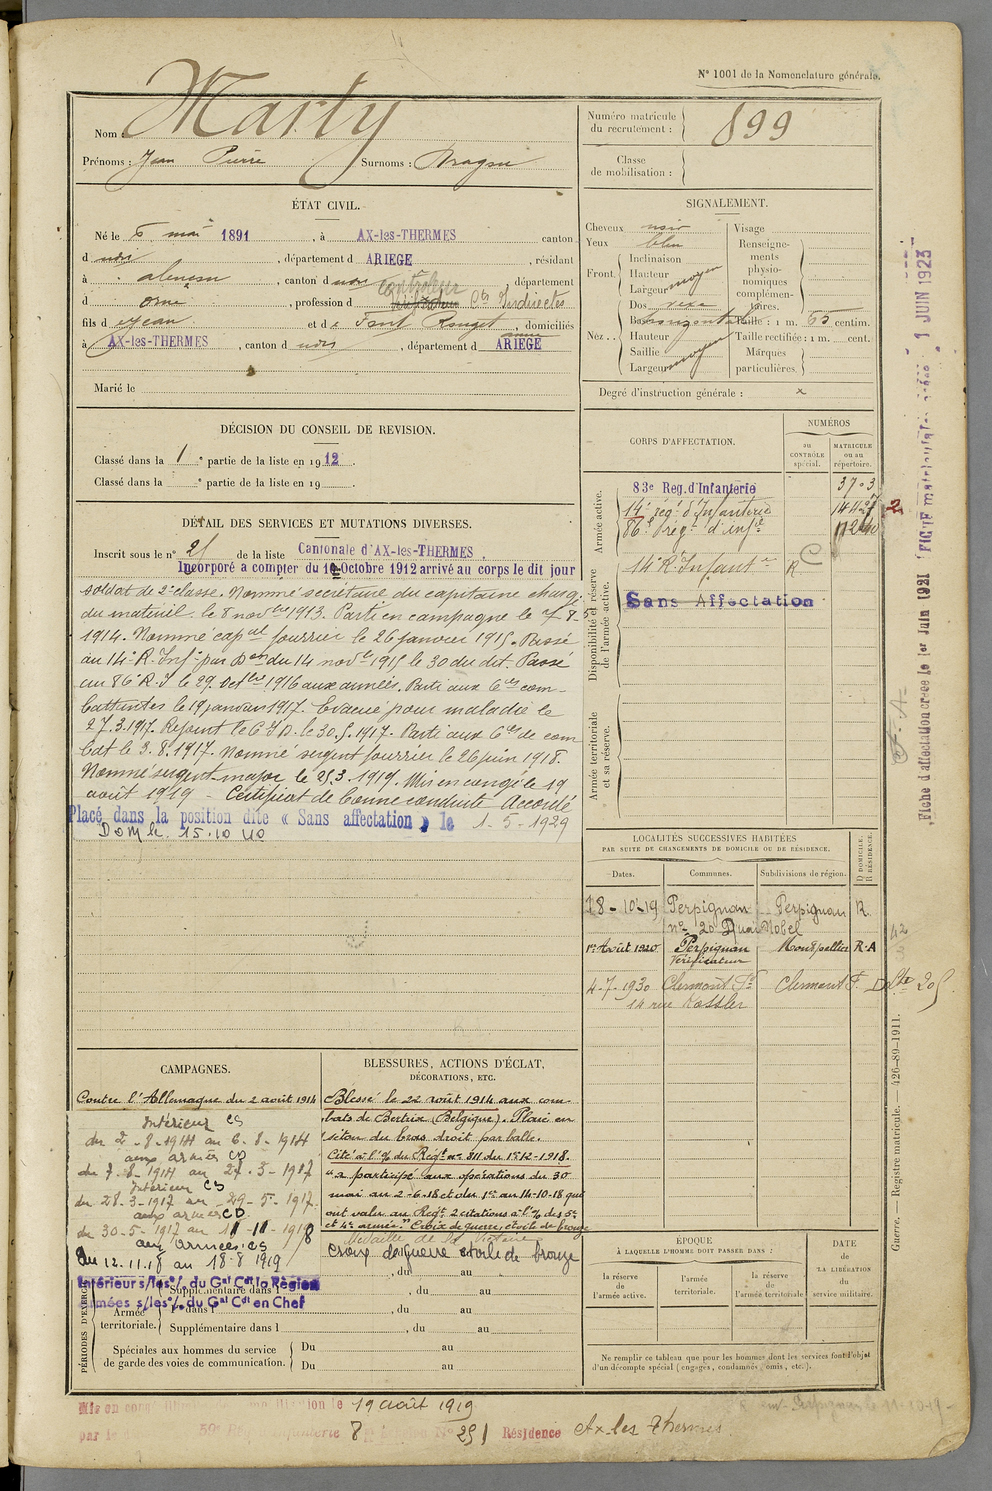 N° 1001 de la Nomenclature générale.
Nom : Marty
Prénoms : Jean Pierre Surnoms :
Numéro matricule du recrutement : 899
Classe de mobilisation :
ÉTAT CIVIL.
Né le 6 mai 1891, à AX-les-THERMES canton
d udit, département d ARIEGE, résidant
à alençon, canton d udit, département
d orne, profession d contrôleur Ctes Indirectes
fils d e Jean et d e Font Rouget, domiciliés
à AX-les-THERMES, canton d udit, département d ARIEGE
Marié le
SIGNALEMENT.
Cheveux noir
Yeux bleu
Front. Inclinaison
Hauteur
Largeur moyen
Nez. Dos vexe
Base horizontale
Hauteur
Saillie
Largeur moyen
Visage
Renseignements physionomiques complémentaires.
Taille : 1 m. 65 centim.
Taille rectifiée : 1 m. cent.
Marques particulières.
Degré d'instruction générale :
DÉCISION DU CONSEIL DE REVISION.
Classé dans la 1 e partie de la liste en 1912.
Classé dans la e partie de la liste en 19 .
CORPS D'AFFECTATION.
NUMÉROS
au CONTRÔLE spécial.
MATRICULE ou au répertoire.
Armée active.
83e Reg. d'Infanterie 3703
14e reg t d'Infanterie
86e reg t d'inf ie
Disponibilité et réserve de l'armée active.
14e R. Infant ie R C
Sans Affectation
Armée territoriale et sa réserve.
DÉTAIL DES SERVICES ET MUTATIONS DIVERSES.
Inscrit sous le n° 25 de la liste Cantonale d'AX-les-THERMES.
Incorporé à compter du 10 Octobre 1912 arrivé au corps le dit jour
soldat de 2e classe. Nommé secrétaire du capitaine charg.
du matériel le 8 nov bre 1913. Parti en campagne le 7 8
1914. Nommé cap al fourrier le 26 janvier 1915. Passé
au 14e R. Inf ie par D on du 14 nov e 1915 le 30 du dit. Passé
au 86e R. I le 29 Oct bre 1916 aux armées. Parti aux C ies com-
battantes le 19 janvier 1917. Evacué pour maladie le
27.3.1917. Rejoint le C I D. le 30.5.1917. Parti aux C ies de com
bat le 3.8.1917. Nommé sergent fourrier le 26 juin 1918.
Nommé sergent-major le 25.3.1919. Mis en congé le 19
août 1919 - Certificat de bonne conduite Accordé
Placé dans la position dite « Sans affectation » le 1-5-1929
15.10 40
LOCALITÉS SUCCESSIVES HABITÉES
PAR SUITE DE CHANGEMENTS DE DOMICILE OU DE RÉSIDENCE.
Dates. Communes. Subdivisions de région. D DOMICILE. R RÉSIDENCE.
18-10-19 Perpignan Perpignan R.
n° 20 Quai Nobel
1er Août 1920 Perpignan Montpellier R-A
Vérificateur
4-7-1930 Clermont Fd Clermont F.
14 rue Kessler
CAMPAGNES.
Contre l'Allemagne du 2 août 1914
Intérieur CS
du 2-8-1914 au 6-8-1914
aux armées CD
du 7-8-1914 au 27-3-1917
Intérieur CS
du 28-3-1917 au 29-5-1917
aux armées CD
du 30-5-1917 au 11-11-1918
aux armées CS
du 12.11.18 au 18-8 1919
BLESSURES, ACTIONS D'ÉCLAT, DÉCORATIONS, ETC.
Blessé le 22 août 1914 aux com-
bats de Bertrix (Belgique). Plaie en
séton du bras droit par balle.
Cité à l'% du Rég t n° 311 du 1er-12-1918.
"a participé aux opérations du 30
mai au 2-6-18 et du 1er au 14-10-18 qui
ont valu au Rég t 2 citations à l'% des 5e
et 4e armée." Croix de guerre, étoile de bronze
Médaille de la Victoire
croix de guerre etoile de bronze
PÉRIODES D'EXERC
Intérieur s/les % du Gal Cdt la Région
Armées s/les % du Gal Cdt en Chef
Supplémentaire dans l , du au
Armée territoriale. dans l , du au
Supplémentaire dans l , du au
Spéciales aux hommes du service de garde des voies de communication. Du au
Du au
ÉPOQUE
À LAQUELLE L'HOMME DOIT PASSER DANS :
la réserve de l'armée active.
l'armée territoriale.
la réserve de l'armée territoriale
DATE de LA LIBÉRATION du service militaire.
Ne remplir ce tableau que pour les hommes dont les services font l'objet d'un décompte spécial (engagés, condamnés, omis, etc.).
Mis en congé le 19 août 1919
par le Infanterie N° 251 Résidence Ax-les Thermes
Fiche d'affectation créée le 1er Juin 1921 1 JUIN 1923
Guerre. — Registre matricule. — 426-89-1911.